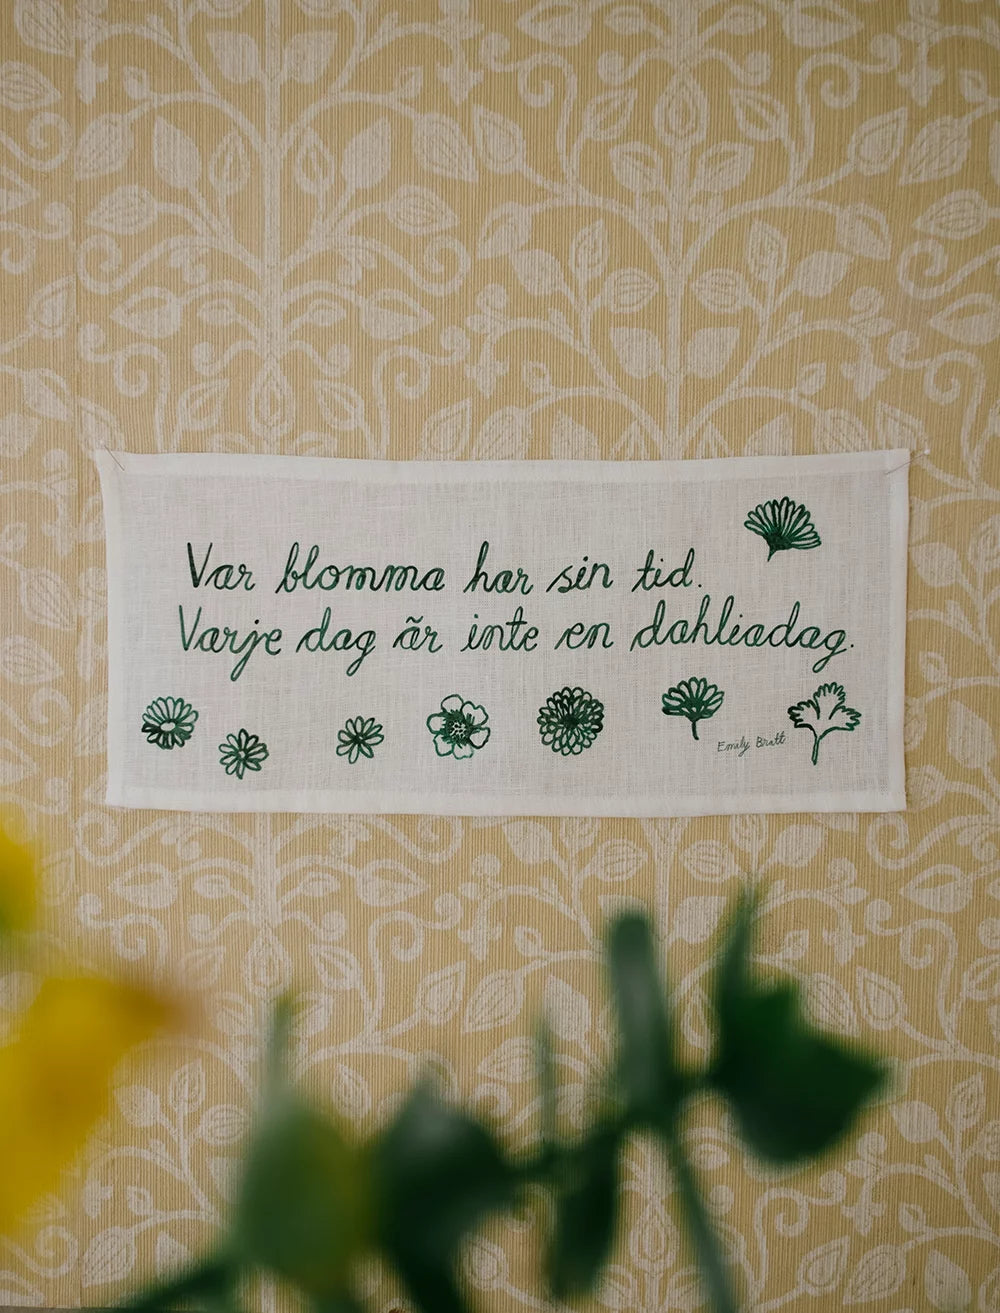 Var blomma har sin tid.
Varje dag är inte en dahliadag.
Emily Bratt